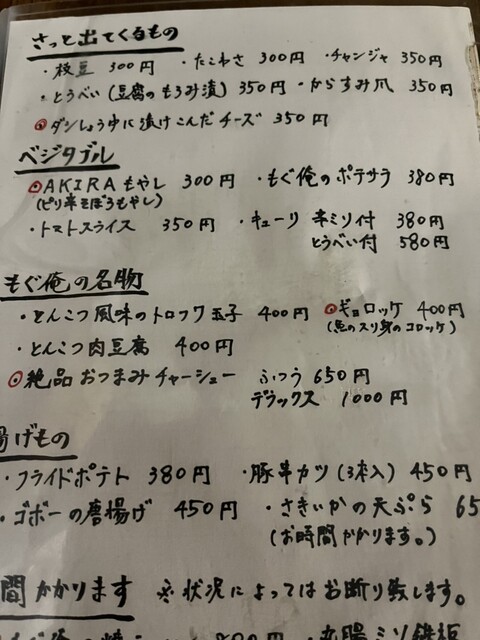 さっと出てくるもの
・枝豆 300円 ・たこわさ 300円 ・チャンジャ 350円
・とうべい(豆腐のもろみ漬) 350円 ・からすみ爪 350円
◎ダシしょうゆに漬けこんだチーズ 350円
ベジタブル
◎AKIRAもやし 300円 ・もぐ俺のポテサラ 380円
(ピリ辛そぼろもやし)
・トマトスライス 350円 ・キューリ 辛ミソ付 380円
とうべい付 580円
もぐ俺の名物
・とんこつ風味のトロフワ玉子 400円 ◎ギョロッケ 400円
(魚のスリ身のコロッケ)
・とんこつ肉豆腐 400円
◎絶品おつまみチャーシュー ふつう 650円
デラックス 1000円
揚げもの
・フライドポテト 380円 ・豚串カツ(3本入) 450円
・ゴボーの唐揚げ 450円 ・さきいかの天ぷら 65
(お時間かかります。)
間かかります ※状況によってはお断り致します。